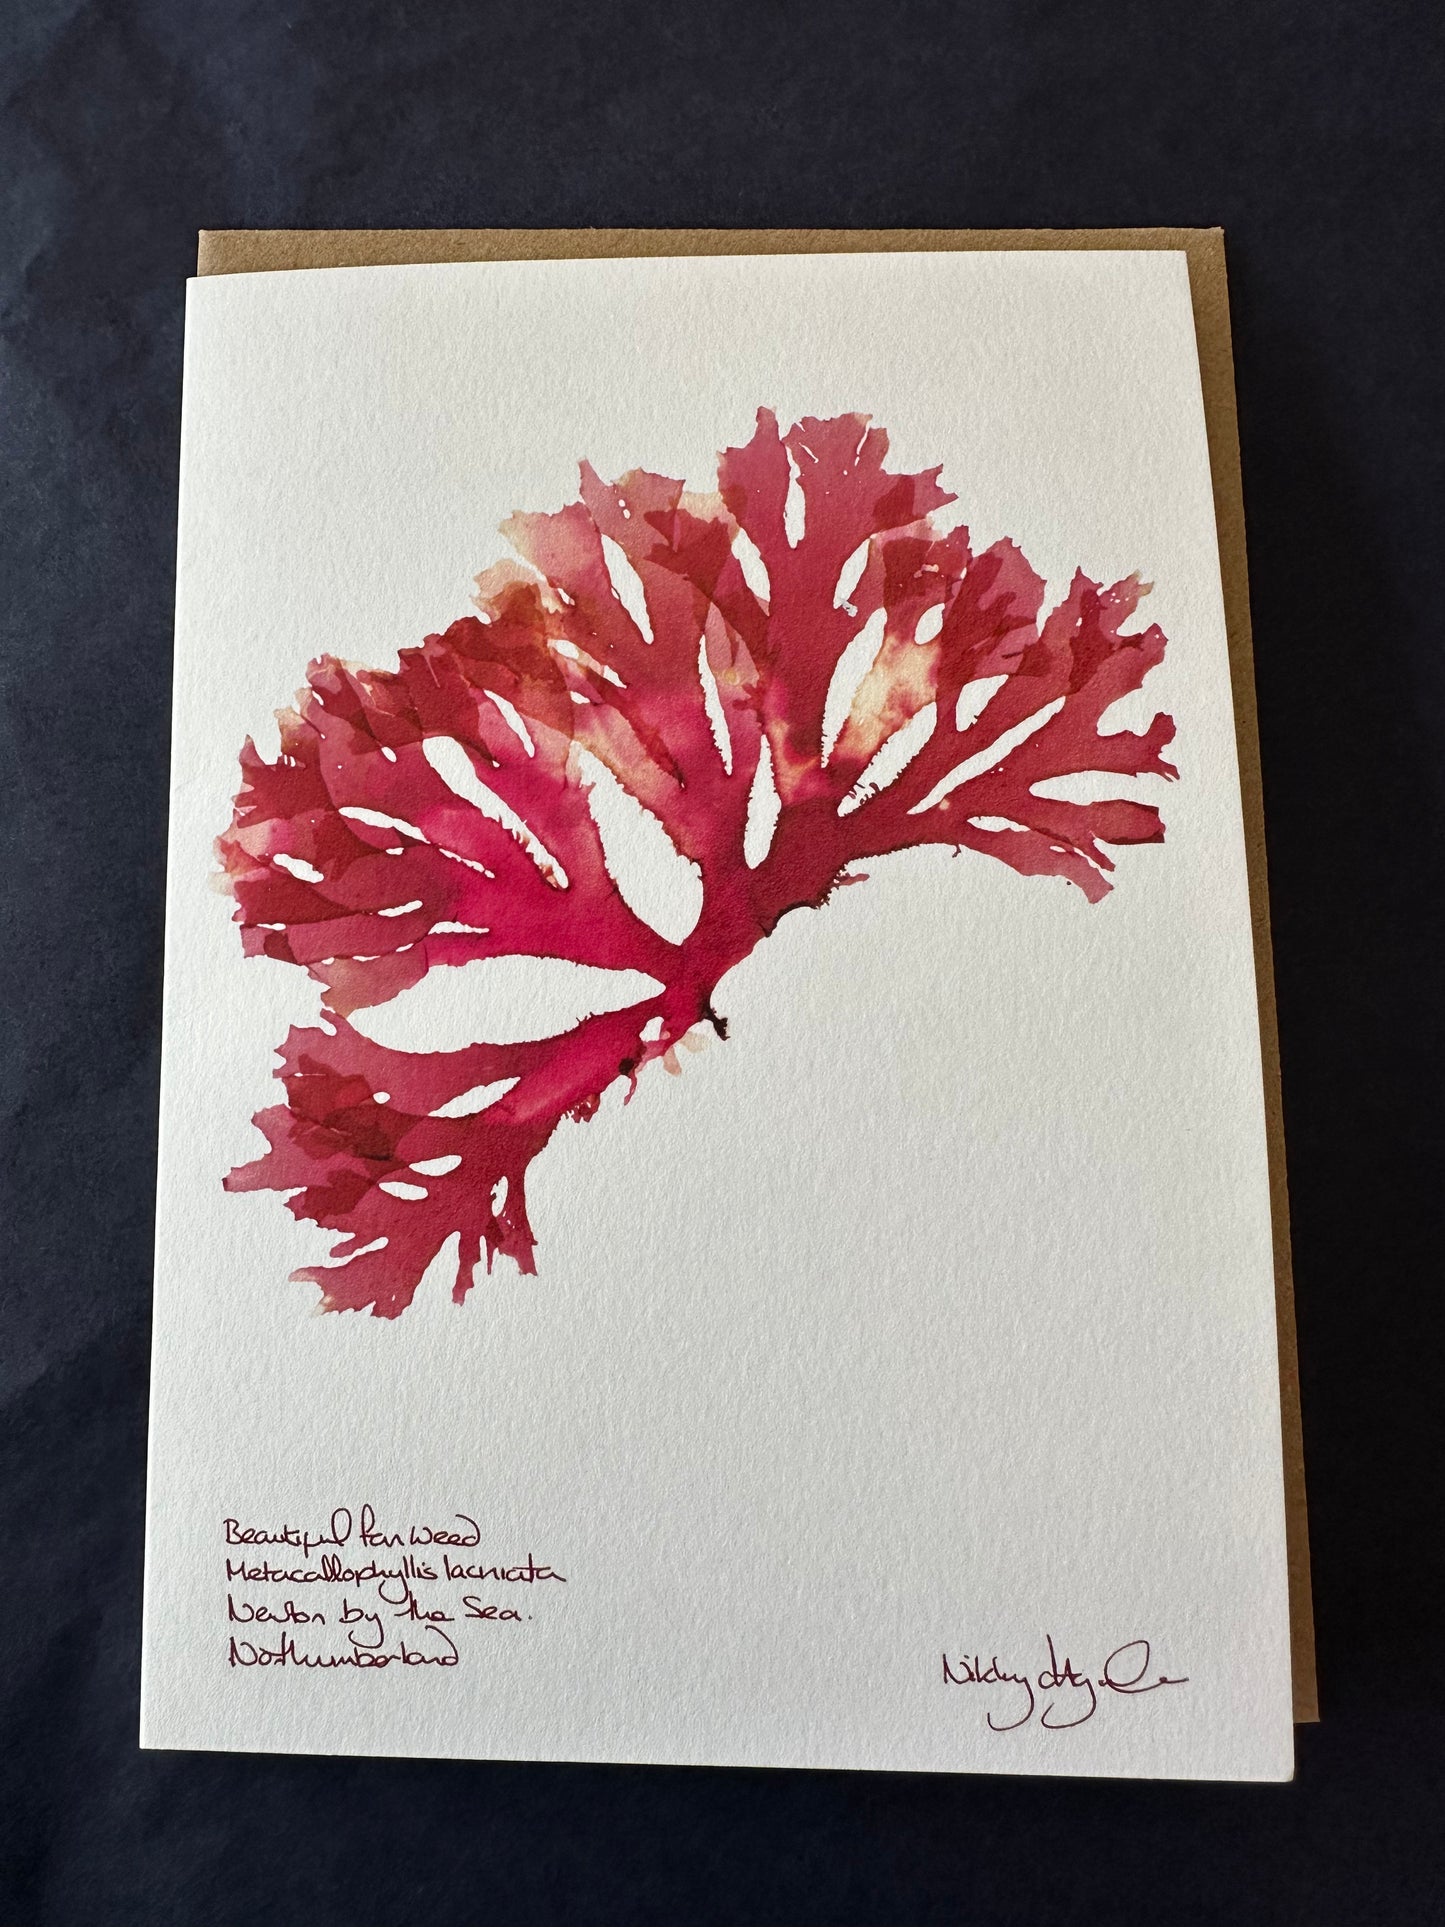 Beautiful Fan Weed
Metacallophyllis laciniata
Newton by the Sea.
Northumberland
Nikky d'Agle